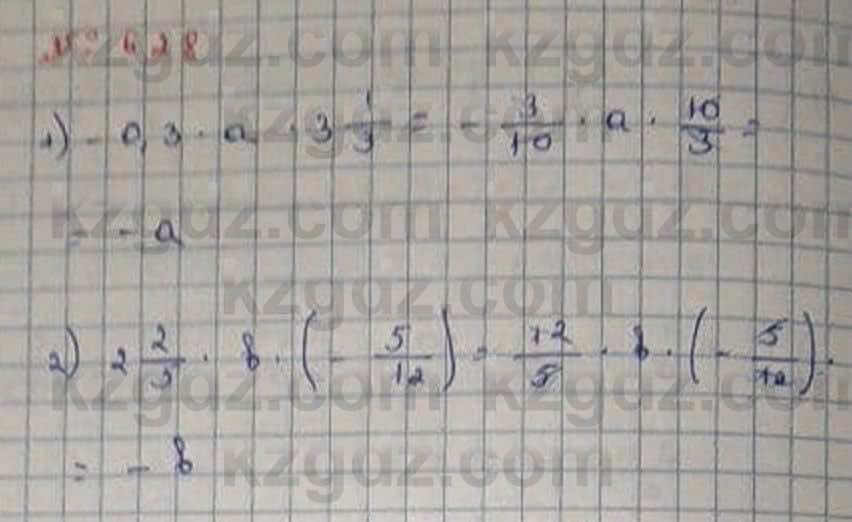 № 428
1) - 0,3 · a · 3 1/3 = - 3/10 · a · 10/3 =
= - a
2) 2 2/5 · b · (- 5/12) = 12/5 · b · (- 5/12) .
= - b
kzgdz.com kzgdz.com
kzgdz.com kzgdz.com
kzgdz.com kzgdz.com
kzgdz.com kzgdz.com
kzgdz.com kzgdz.com
kzgdz.com